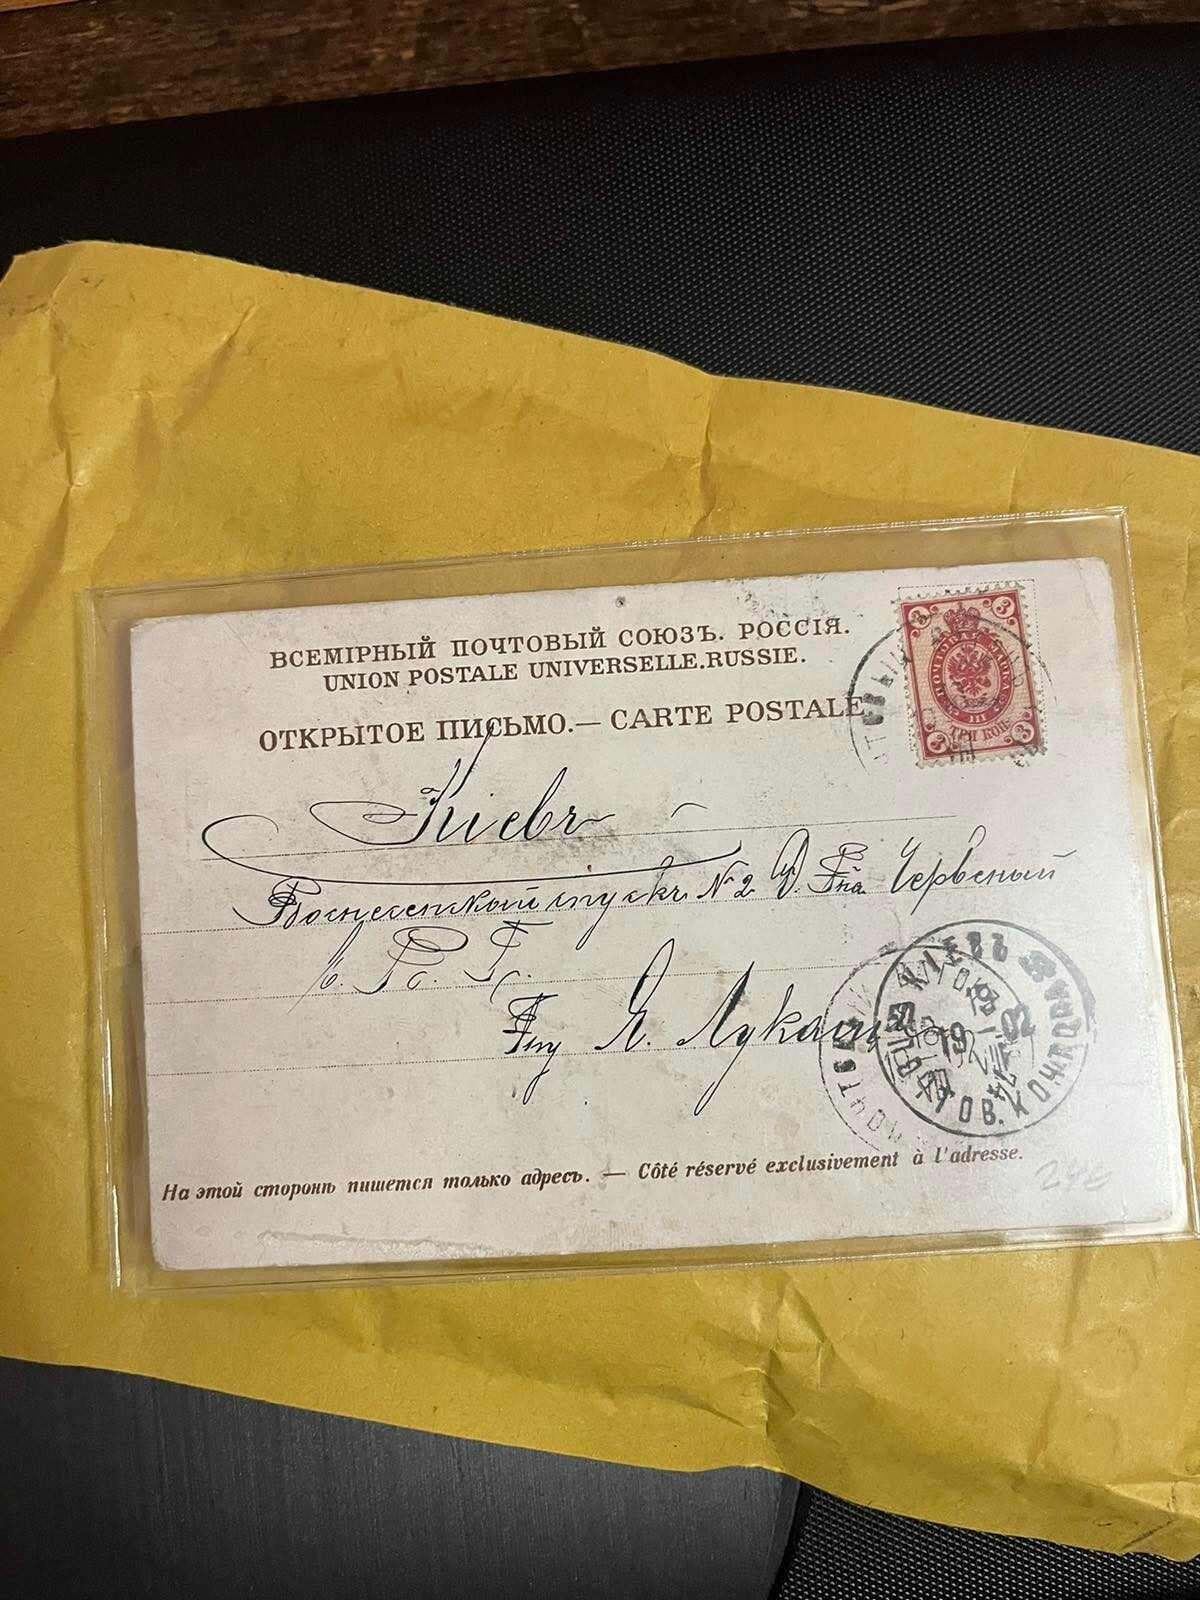 ВСЕМІРНЫЙ ПОЧТОВЫЙ СОЮЗЪ. РОССІЯ.
UNION POSTALE UNIVERSELLE.RUSSIE.
ОТКРЫТОЕ ПИСЬМО.— CARTE POSTALE
3 3
ПОЧТОВАЯ МАРКА
III
3 ТРИ КОП. 3
Кіевъ
Вознесенскій спускъ № 2 Д. Червеный
Е. В. Б.
Я. Лукаш
КІЕВЪ
19 02
ПОЧТОВЫЙ
На этой сторонѣ пишется только адресъ. — Côté réservé exclusivement à l'adresse.